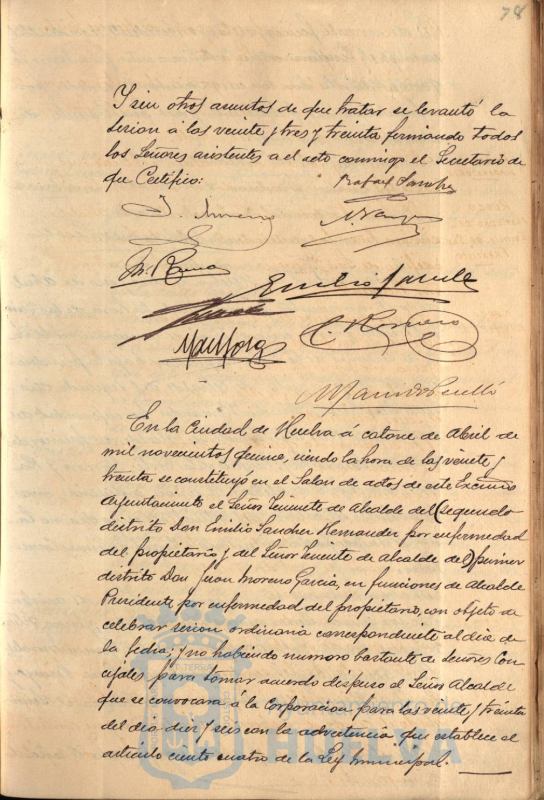 78
Y sin otros asuntos de que tratar se levantó la
sesion á las veinte y tres y treinta firmando todos
los Señores asistentes a el acto conmigo el Secretario de
que Certifico:
Rafael Sanchez
J. Moreno
Emilio
C. Romero
En la Ciudad de Huelva á catorce de Abril de
mil novecientos quince, siendo la hora de las veinte y
treinta se constituyó en el Salon de actos de este Excmo
Ayuntamiento el Señor Teniente de Alcalde del (segundo
distrito Don Emilio Sanchez Hernandez por enfermedad
del propietario y del Señor Teniente de Alcalde del) primer
distrito Don Juan Moreno Garcia, en funciones de Alcalde
Presidente por enfermedad del propietario, con objeto de
celebrar sesion ordinaria correspondiente al dia de
la fecha; y no habiendo numero bastante de Señores Con
cejales para tomar acuerdo dispuso el Señor Alcalde
que se convocara á la Corporacion para las veinte y treinta
del dia diez y seis con la advertencia que establece el
articulo ciento cuatro de la Ley Municipal.
HUELVA